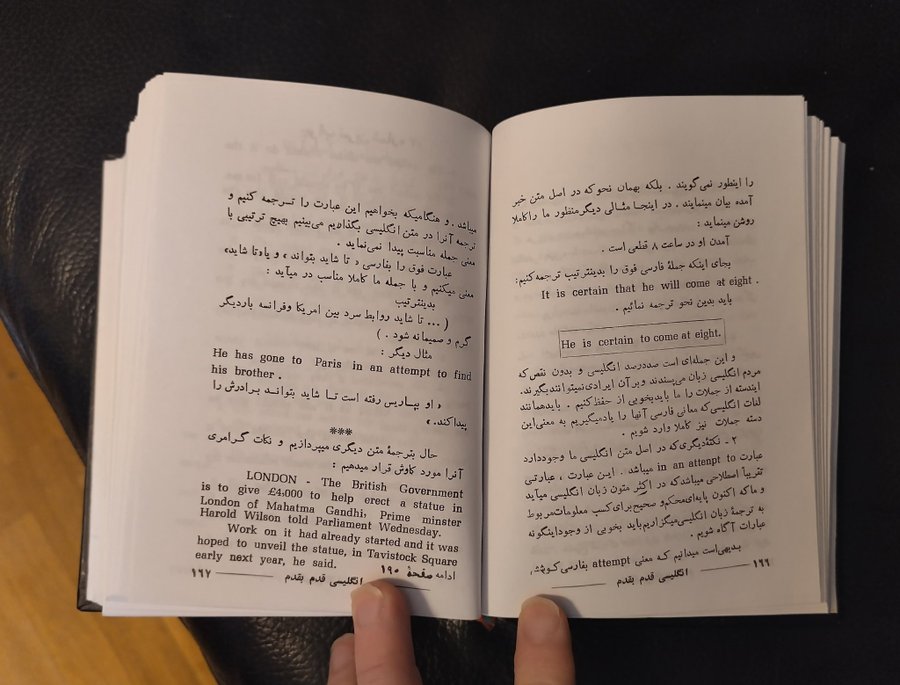 را اینطور نمی‌گویند . بلکه بهمان نحو که در اصل متن خبر
آمده بیان مینمایند . در اینجا مثالی دیگر منظور ما را کاملا
روشن مینماید :
آمدن او در ساعت ۸ قطعی است .
بجای اینکه جملهٔ فارسی فوق را بدینترتیب ترجمه کنیم:
It is certain that he will come at eight .
باید بدین نحو ترجمه نمائیم .
He is certain to come at eight.
و این جمله‌ای است صددرصد انگلیسی و بدون نقص که
مردم انگلیسی زبان می‌پسندند و بر آن ایرادی نمیتوانند بگیرند.
ایندسته از جملات را ما باید بخوبی از حفظ کنیم . باید همانند
لغات انگلیسی که معانی فارسی آنها را یاد میگیریم به معنی این
دسته جملات نیز کاملا وارد شویم .
۲ - نکتهٔ دیگری که در اصل متن انگلیسی ما وجود دارد
عبارت in an attenpt to میباشد . این عبارت ، عبارتی
تقریباً اصطلاحی میباشد که در اکثر متون زبان انگلیسی میآید
و ما که اکنون پایه‌ای محکم و صحیح برای کسب معلومات مربوط
به ترجمهٔ زبان انگلیسی میگزاریم باید بخوبی از وجود اینگونه
عبارات آگاه شویم .
بدیهی است میدانیم که معنی attempt بفارسی کوشش،
۱۶۶ ——— انگلیسی قدم بقدم
میباشد . و هنگامیکه بخواهیم این عبارت را ترجمه کنیم و
ترجمه آنرا در متن انگلیسی بگذاریم می‌بینیم بهیچ ترتیبی با
معنی جمله مناسبت پیدا نمی‌نماید .
عبارت فوق را بفارسی « تا شاید بتواند » و یا «تا شاید»
معنی میکنیم و با جمله ما کاملا مناسب در میآید :
بدینترتیب
( ... تا شاید روابط سرد بین امریکا وفرانسه باردیگر
گرم و صمیمانه شود . )
مثال دیگر :
He has gone to Paris in an attempt to find
his brother .
« او بپاریس رفته است تا شاید بتواند برادرش را
پیدا کند. »
***
حال بترجمهٔ متن دیگری میپردازیم و نکات گرامری
آنرا مورد کاوش قرار میدهیم :
LONDON - The British Government
is to give £4,000 to help erect a statue in
London of Mahatma Gandhi, Prime minster
Harold Wilson told Parliament Wednesday.
Work on it had already started and it was
hoped to unveil the statue, in Tavistock Square
early next year, he said.
ادامه صفحهٔ ۱۹۰
انگلیسی قدم بقدم ——— ۱۶۷